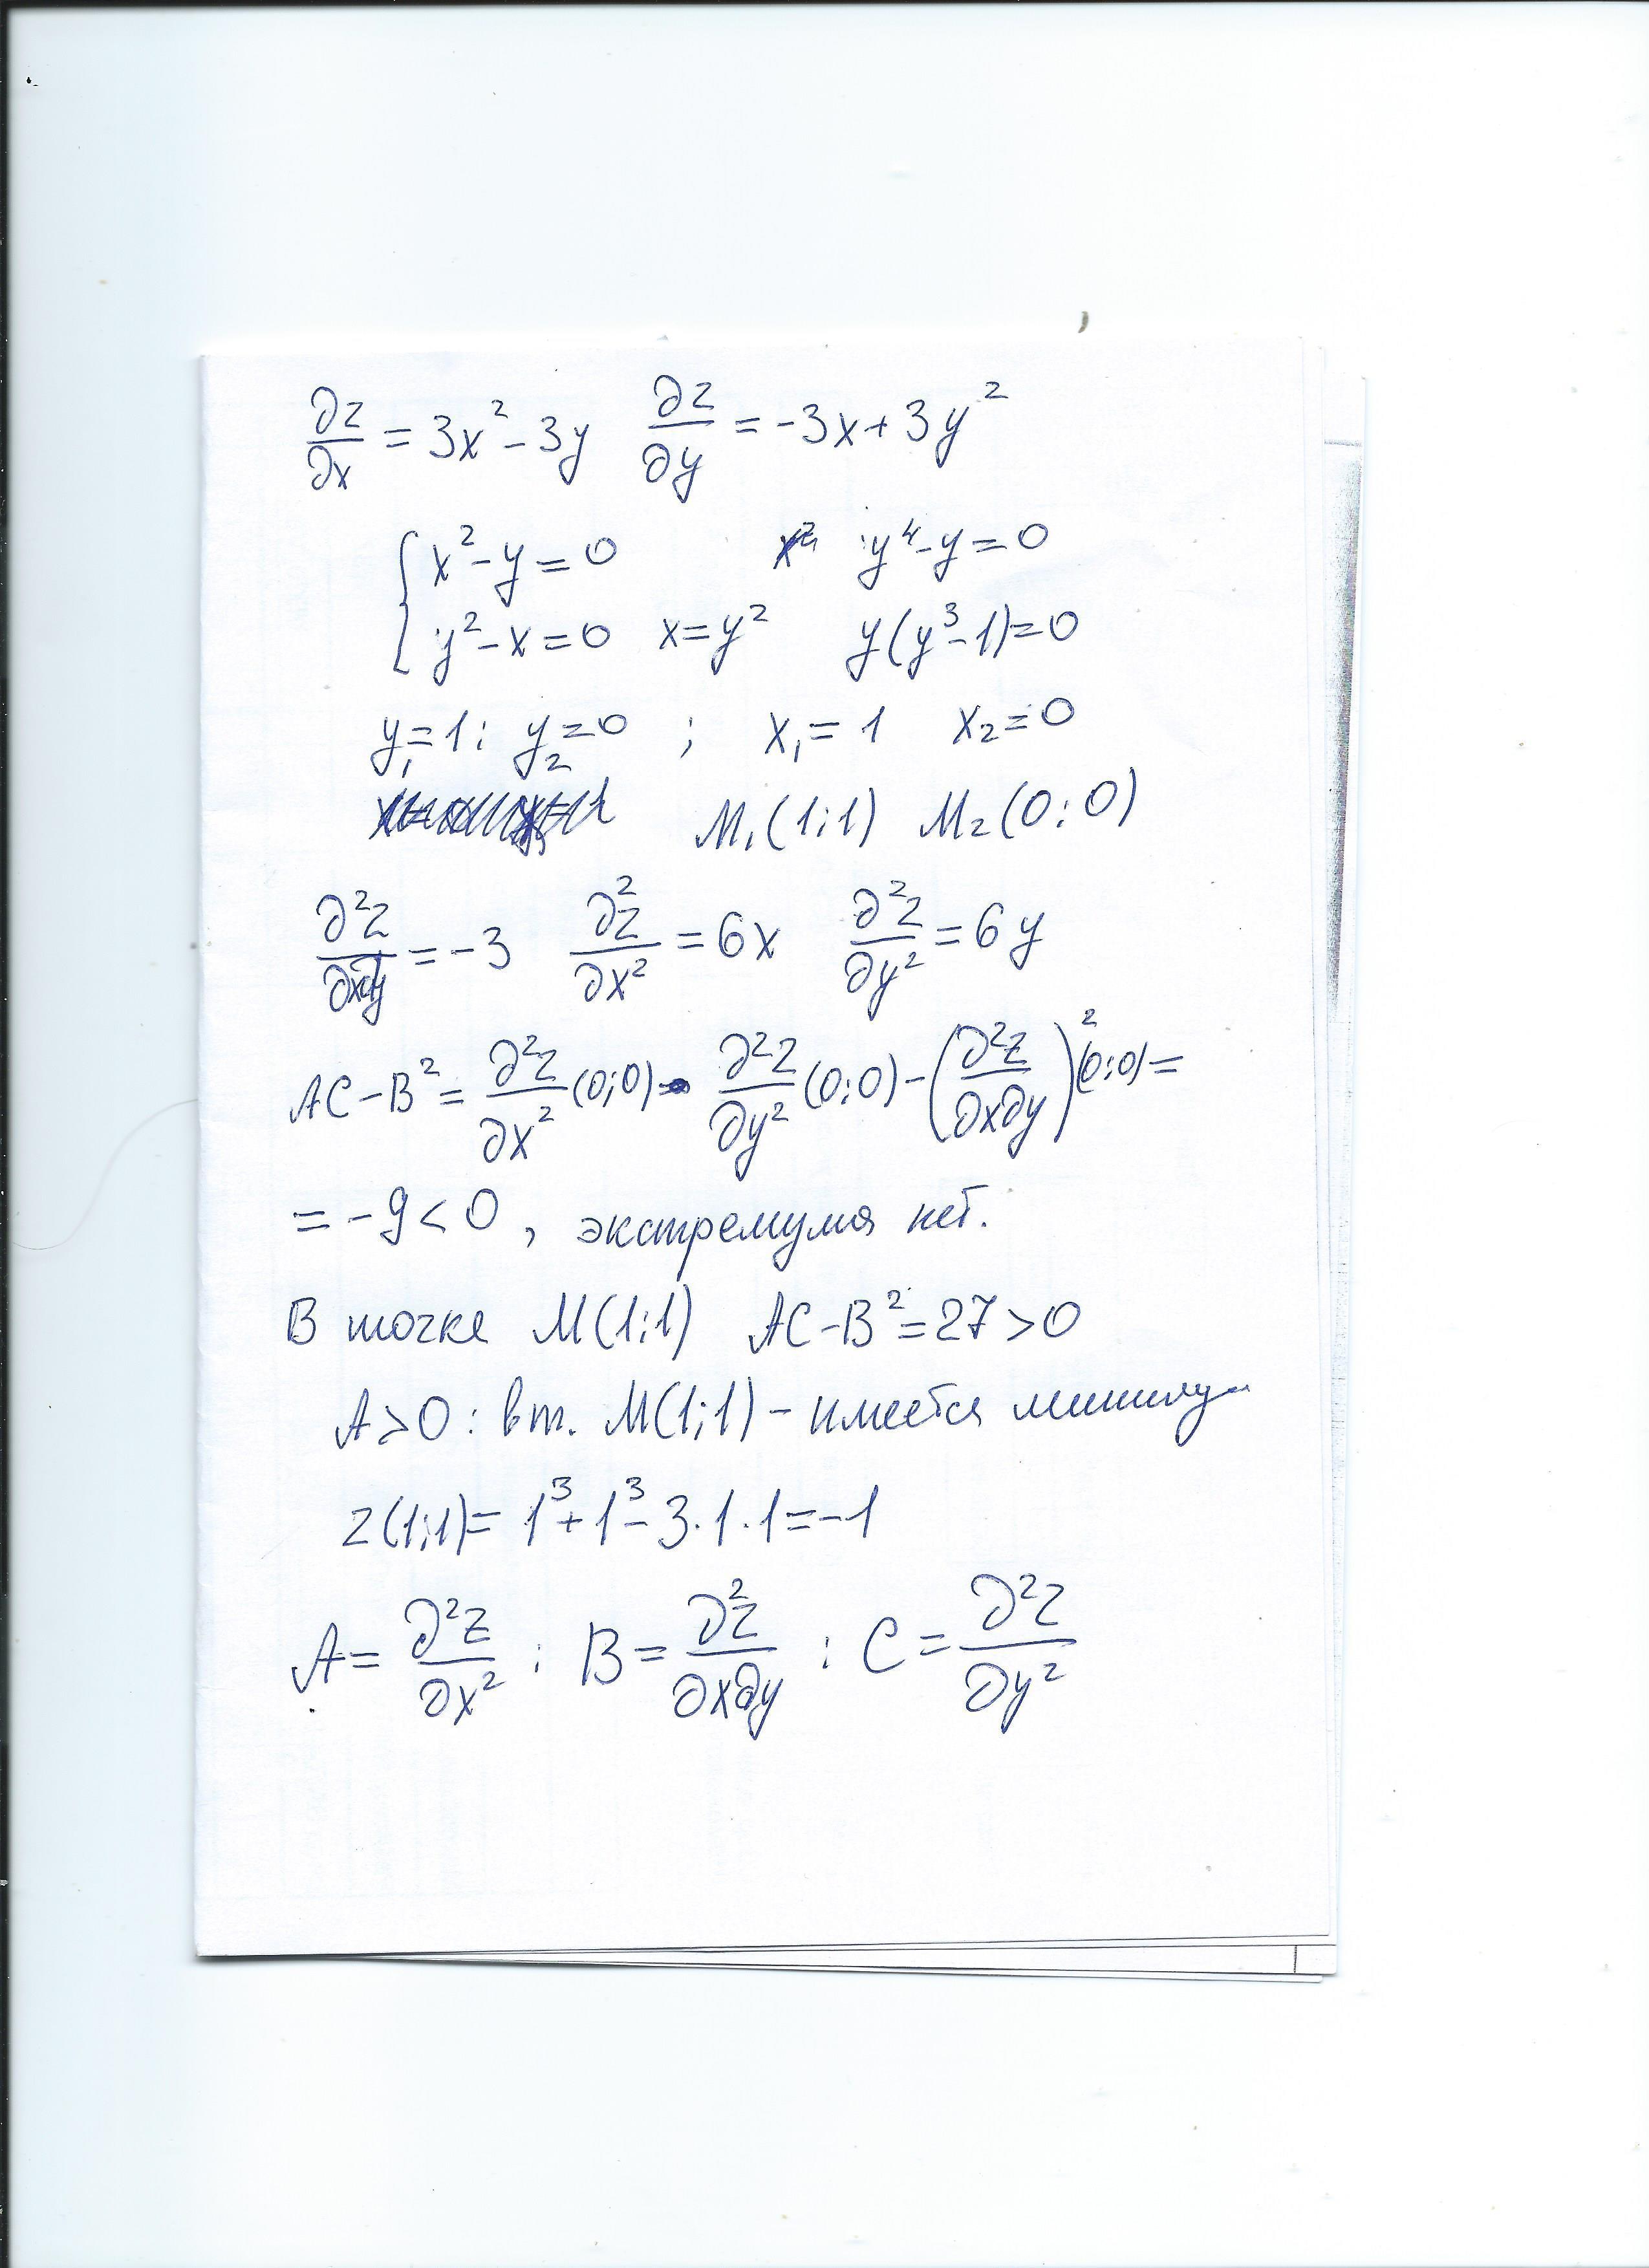 ∂z/∂x = 3x² - 3y ∂z/∂y = -3x + 3y²
{ x² - y = 0 y⁴ - y = 0
y² - x = 0 x = y² y(y³ - 1) = 0
y₁ = 1; y₂ = 0 ; x₁ = 1 x₂ = 0
M₁(1;1) M₂(0;0)
∂²z/∂x∂y = -3 ∂²z/∂x² = 6x ∂²z/∂y² = 6y
AC - B² = ∂²z/∂x² (0;0) · ∂²z/∂y² (0;0) - (∂²z/∂x∂y)² (0;0) =
= -9 < 0 , экстремума нет.
В точке M(1;1) AC - B² = 27 > 0
A > 0 : в т. M(1;1) - имеется минимум
z(1;1) = 1³ + 1³ - 3·1·1 = -1
A = ∂²z/∂x² ; B = ∂²z/∂x∂y ; C = ∂²z/∂y²